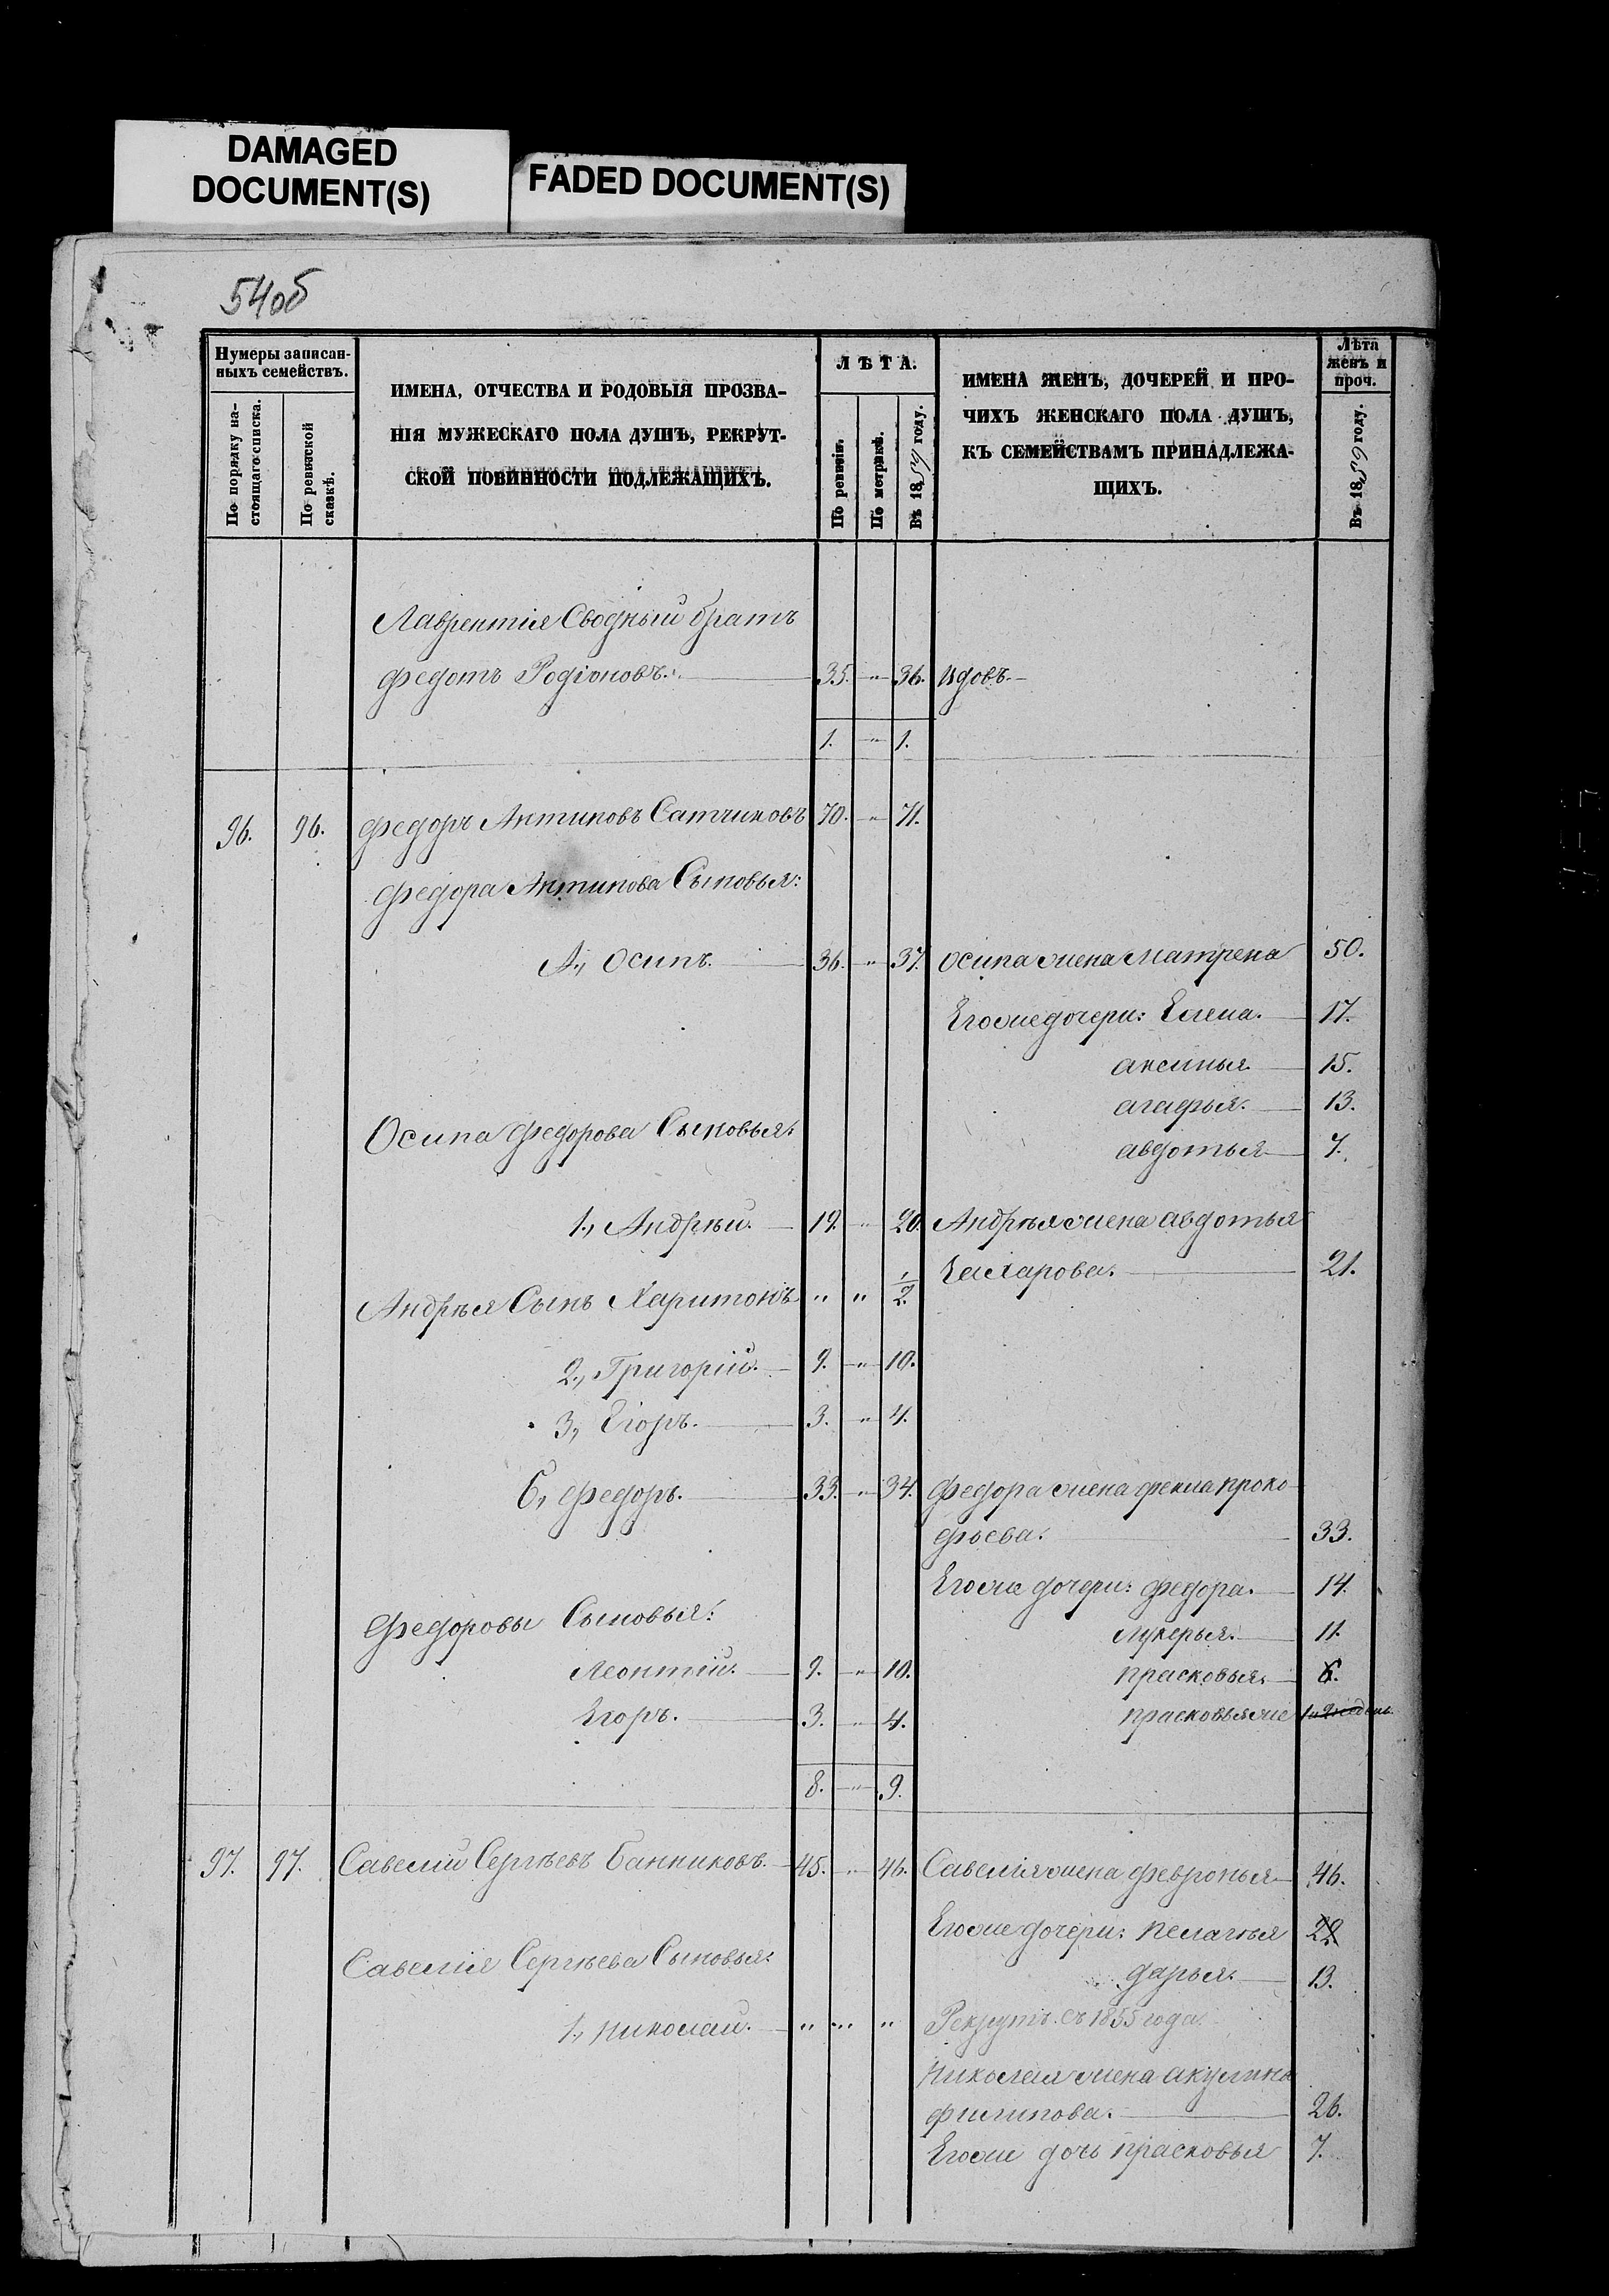 DAMAGED
DOCUMENT(S)
FADED DOCUMENT(S)
54об
Нумеры записан-
ныхъ семействъ.
По порядку на-
стоящаго списка.
По ревизской
сказкѣ.
ИМЕНА, ОТЧЕСТВА И РОДОВЫЯ ПРОЗВА-
НІЯ МУЖЕСКАГО ПОЛА ДУШЪ, РЕКРУТ-
СКОЙ ПОВИННОСТИ ПОДЛЕЖАЩИХЪ.
ЛѢТА.
По ревизіи.
По метрикѣ.
Въ 1859 году.
ИМЕНА ЖЕНЪ, ДОЧЕРЕЙ И ПРО-
ЧИХЪ ЖЕНСКАГО ПОЛА ДУШЪ,
КЪ СЕМЕЙСТВАМЪ ПРИНАДЛЕЖА-
ЩИХЪ.
Лѣта
женъ и
проч.
Въ 1859 году.
Лаврентія Сводный братъ
Федотъ Родіоновъ. 35. " 36. вдовъ
1. " 1.
96. 96. Федоръ Антиповъ Сатчиковъ 70. " 71.
Федора Антипова Сыновья:
А., Осипъ. 36. " 37. Осипа жена Матрена 50.
Егоже дочери: Елена. 17.
аксинья. 15.
агафья. 13.
Осипа Федорова Сыновья:
авдотья 7.
1., Андрѣй. 19. " 20. Андрѣя жена авдотья
21.
Андрѣя Сынъ Харитонъ " " 1/2.
2., Григорій. 9. " 10.
3., Егоръ. 3. " 4.
Б., Федоръ. 33. " 34. Федора жена фекла проко-
фьева. 33.
Егоже дочери: федора. 14.
Федоровы Сыновья:
лукерья. 11.
Леонтій. 9. " 10. прасковья. 6.
Егоръ. 3. " 4. прасковья же
8. " 9.
97. 97. Савелій Сергѣевъ Банниковъ. 45. " 46. Савелія жена февронья 46.
Егоже дочери: пелагѣя 22
Савелія Сергѣева Сыновья:
дарья. 13.
1., николай. " " " Рекрутъ. съ 1855 года.
Николая жена акулина
филипова. 26.
Егоже дочь прасковья 7.